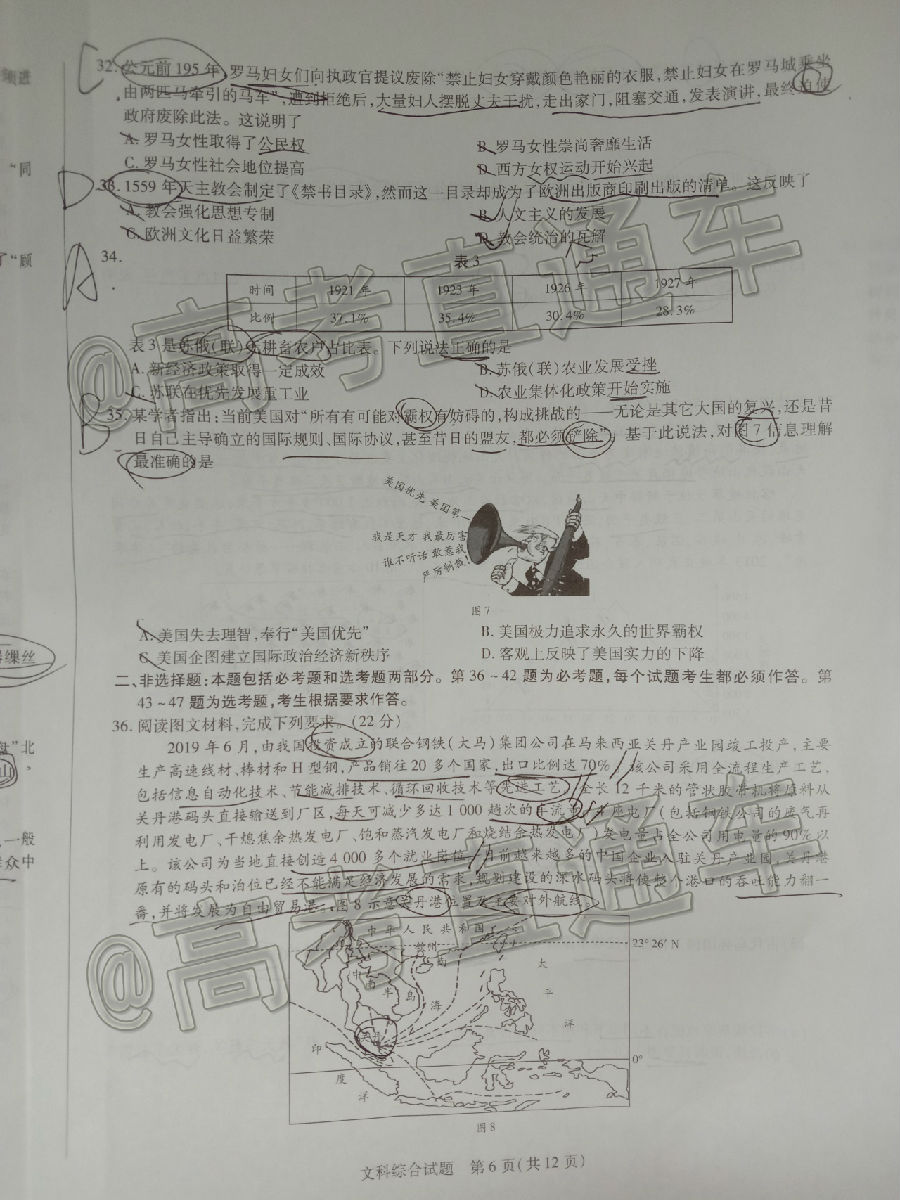 32. 公元前 195 年,罗马妇女们向执政官提议废除“禁止妇女穿戴颜色艳丽的衣服,禁止妇女在罗马城乘坐
由两匹马牵引的马车”,遭到拒绝后,大量妇人摆脱丈夫干扰,走出家门,阻塞交通,发表演讲,最终迫使
政府废除此法。这说明了
A. 罗马女性取得了公民权
B. 罗马女性崇尚奢靡生活
C. 罗马女性社会地位提高
D. 西方女权运动开始兴起
33. 1559 年天主教会制定了《禁书目录》,然而这一目录却成为了欧洲出版商印刷出版的清单。这反映了
A. 教会强化思想专制
B. 人文主义的发展
C. 欧洲文化日益繁荣
D. 教会统治的瓦解
34.
表 3
时间 1921 年 1923 年 1926 年 1927 年
比例 37.1% 35.4% 30.4% 28.3%
表 3 是苏俄(联)无耕畜农户占比表。下列说法正确的是
A. 新经济政策取得一定成效
B. 苏俄(联)农业发展受挫
C. 苏联在优先发展重工业
D. 农业集体化政策开始实施
35. 某学者指出:当前美国对“所有有可能对霸权有妨碍的,构成挑战的——无论是其它大国的复兴,还是昔
日自己主导确立的国际规则、国际协议,甚至昔日的盟友,都必须铲除”。基于此说法,对图 7 信息理解
最准确的是
美国优先 美国第一
我是天才 我最厉害
谁不听话 敢惹我
严厉制裁!
图 7
A. 美国失去理智,奉行“美国优先”
B. 美国极力追求永久的世界霸权
C. 美国企图建立国际政治经济新秩序
D. 客观上反映了美国实力的下降
二、非选择题:本题包括必考题和选考题两部分。第 36～42 题为必考题,每个试题考生都必须作答。第
43～47 题为选考题,考生根据要求作答。
36. 阅读图文材料,完成下列要求。(22 分)
2019 年 6 月,由我国投资成立的联合钢铁(大马)集团公司在马来西亚关丹产业园竣工投产,主要
生产高速线材、棒材和 H 型钢,产品销往 20 多个国家,出口比例达 70%。该公司采用全流程生产工艺,
包括信息自动化技术、节能减排技术、循环回收技术等先进工艺。全长 12 千米的管状胶带机将原料从
关丹港码头直接输送到厂区,每天可减少多达 1 000 趟次的车流量。自建电厂(包括钢铁公司的废气再
利用发电厂、干熄焦余热发电厂、饱和蒸汽发电厂和烧结余热发电厂)发电量占全公司用电量的 90%以
上。该公司为当地直接创造 4 000 多个就业岗位。目前越来越多的中国企业入驻关丹产业园,关丹港
原有的码头和泊位已经不能满足经济发展的需求,规划建设的深水码头将使整个港口的吞吐能力翻一
番,并将发展为自由贸易港。图 8 示意关丹港位置及主要对外航线。
中华人民共和国
钦州
23°26′N
中
南
半
岛
南
海
太
平
洋
关丹
印
度
洋
0°
图 8
文科综合试题 第 6 页(共 12 页)
@高考直通车
@高考直通车
C
D
A
B
频进
“同
了“顾
缫丝
盘”北
山
,一般
群众中